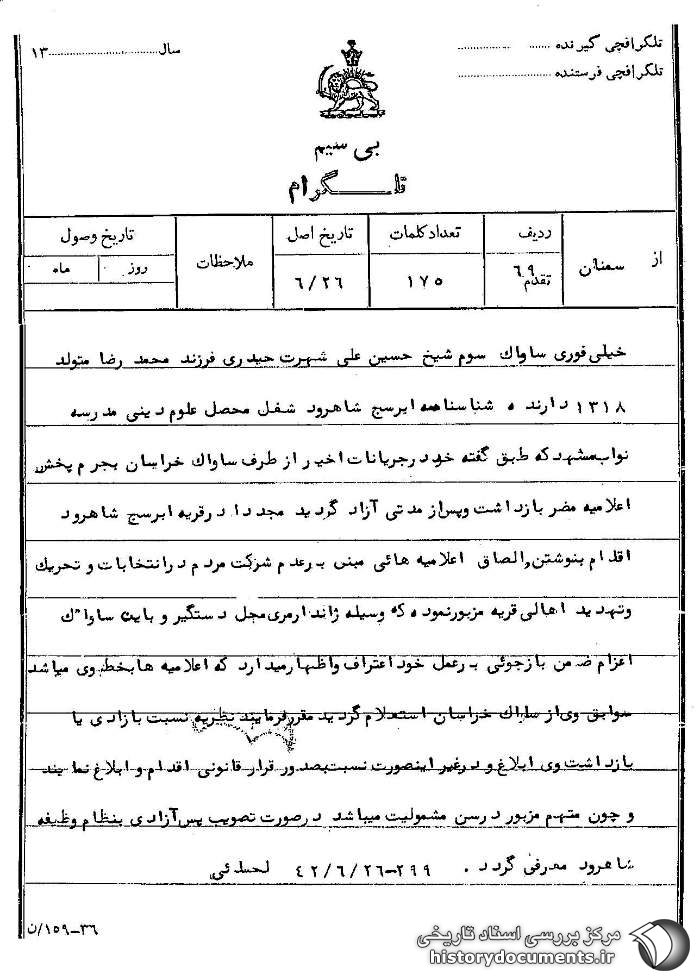 تلگرافچی گیرنده ....................
تلگرافچی فرستنده ....................
سال ....................۱۳
بی سیم
تلگرام
از سمنان
ردیف
۶۹
تقدم
تعدادکلمات
۱۷۵
تاریخ اصل
۶/۲۶
ملاحظات
تاریخ وصول
روز
ماه
خیلی فوری ساواک سوم شیخ حسین علی شهرت حیدری فرزند محمد رضا متولد
۱۳۱۸ دارنده شناسنامه ابرسج شاهرود شغل محصل علوم دینی مدرسه
نواب مشهد که طبق گفته خود رجریانات اخیر از طرف ساواک خراسان بجرم پخش
اعلامیه مضر بازداشت وپس از مدتی آزاد گردید مجددا درقریه ابرسج شاهرود
اقدام بنوشتن و الصاق اعلامیه هائی مبنی برعدم شرکت مردم درانتخابات و تحریک
وتهدید اهالی قریه مزبور نموده که وسیله ژاندارمری محل دستگیر و باین ساواک
اعزام ضمن بازجوئی برعمل خود اعتراف واظهارمیدارد که اعلامیه ها بخط وی میباشد
سوابق وی از ساواک خراسان استعلام گردید مقررفرمایند نظریه نسبت بازادی یا
بازداشت وی ابلاغ و درغیر اینصورت نسبت بصدور قرار قانونی اقدام و ابلاغ نمایند
و چون متهم مزبور درسن مشمولیت میباشد درصورت تصویب پس آزادی بنظام وظیفه
شاهرود معرفی گردد . ۲۹۹-۴۲/۶/۲۶
۳۶-۱۵۹/ن
مرکز بررسی اسناد تاریخی
historydocuments.ir